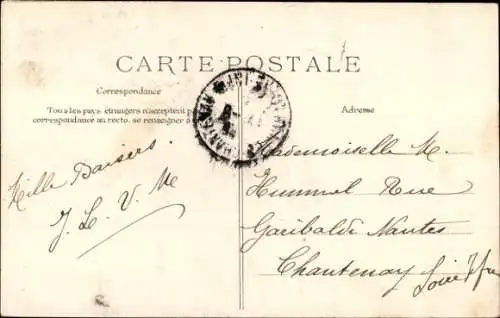 CARTE POSTALE
Correspondance
Tous les pays étrangers n'acceptent p
correspondance au recto. se renseigner à
Adresse
Mille Baisers.
J. L. V. M
Mademoiselle M.
Hummel Rue
Garibaldi Nantes
Chantenay Loire Infre